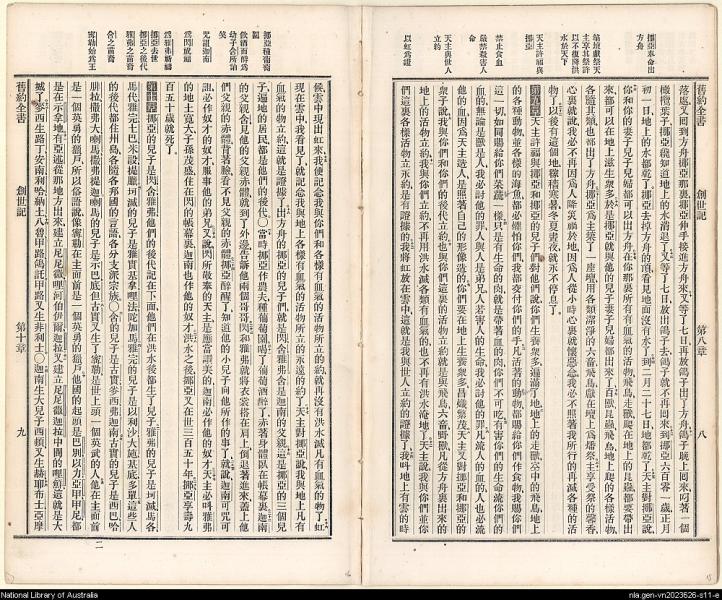 挪亞奉命出
方舟
築壇獻祭天
主享其祭許
以不復降洪
水於天下
天主許福與
挪亞
禁止食血
嚴禁殺害人
命
天主與世人
立約
以虹為證
舊約全書
創世記
第八章
八
落處又回到方舟挪亞那裏挪亞伸手接進方舟來又等了七日再放鴿子出了方舟鴿子晚上回來㕸著一個
橄欖葉子挪亞就知道地上的水消退了又等了七日放出鴿子去鴿子就不再回來到挪亞六百零一歲正月
初一日地上的水都乾了挪亞去掉方舟的頂看見地面沒有水了到二月二十七日地都乾了天主對挪亞說
你和你的妻子兒子兒婦都可以出方舟在你那裏所有血氣的活物飛鳥走獸爬在地上的昆蟲都要帶出
來都可以在地上滋生衆多於是挪亞就與他的兒子妻子兒婦都出來了百獸昆蟲飛鳥地上爬的各樣活物
各隨其類也都出了方舟挪亞爲主築了一座壇用各類潔淨的六畜飛鳥獻在壇上爲燔祭主享受祭的馨香
心裏就說我必不再因爲人降災禍於地因爲人從小時心裏就懷惡念我也必不照著我所行的再滅各種的活
物了以後有這個地稼穡寒暑冬夏晝夜就永不停息了
第九章天主許福與挪亞和挪亞的兒子對他們說你們生養衆多遍滿了地地上的走獸空中的飛鳥地上
的各種動物並各樣的海魚都必懼怕你們我都交付你們的手凡活著的動物都賜給你們作食物我賜你們
這一切如同賜給你們菜蔬一樣只是有生命的肉就是帶著血的肉你們不可吃有害你們的生命流你們
血的無論是獸是人我必討他的罪人與人是弟兄人若害人的生命我必討他的罪凡流人血的人也必流
他的血因爲天主造人是照著自己的形像造的你們要在地上生養衆多昌熾繁茂天主又對挪亞和挪亞的
衆子說我與你們和你們的後代立約也與你們這裏的活物立約就是飛鳥六畜野獸凡從方舟裏出來的
地上的活物立約我與你們立約不再用洪水滅各類有血氣的也不再有洪水淹地了天主說我與你們並你
們這裏各樣活物立永約是有證據的我將虹放在雲中這就是我與世人立約的證據了我叫地上有雲的時
挪亞種葡萄
園
飲酒而醉爲
幼子含所誚
笑
咒詛迦南
爲閃求福
爲雅弗祈禱
挪亞去世
挪亞之後代
雅弗之苗裔
含之苗裔
寗錄始爲王
舊約全書
創世記
第十章
九
候雲中現出虹來我便記念我與你們和各樣有血氣的活物所立的約就再沒有洪水滅凡有血氣的物了虹
現在雲中我看見了就記念我與地上各樣有血氣的活物所立的永遠的約了天主對挪亞說我與地上凡有
血氣的活物立約這就是證據了出方舟的挪亞的兒子們就是閃含雅弗含是迦南的父親這是挪亞的三個兒
子遍地的居民都是他們的後代當時挪亞作農夫種葡萄園喝了葡萄酒醉了赤著身體臥在帳幕裏迦南
的父親含見他的父親赤體就到了外邊告訴他兩個哥哥閃和雅弗就將衣裳搭在肩上倒退著進來蓋上他
父親的赤體背著臉看不見父親的赤體挪亞醉醒了知道他的小兒子向他所作的事了就說迦南可咒可
詛必作奴才的奴才服事他的弟兄又說閃所敬奉的天主是應當讚美的迦南必作他的奴才天主必叫雅弗
的地土寬大子孫茂盛住在閃的帳幕裏迦南也作他的奴才洪水之後挪亞又在世三百五十年挪亞享壽九
百五十歲就死了
第十章挪亞的兒子是閃含雅弗他們的後代記在下面他們在洪水後都生了兒子雅弗的兒子是坷滅馬各
馬代雅完土巴米設提臘坷滅的兒子是雅實基拿哩法陀加馬雅完的兒子是以利沙大施基底多單這些人
的後代都住州島各隨各邦國的言語各分支派宗族含的兒子是古實麥西弗迦南古實的兒子是西巴哈
腓拉撒弗大喇馬撒弗提迦喇馬的兒子是示巴底但古實又生了寗錄他是世上頭一個英武的人他在主面前
是一個英勇的獵戶所以俗語說像寗錄在主面前是一個英勇的獵戶他國的起頭是巴別以力亞甲甲尼都
是在示拿地有亞述從那地方出來建立尼尼微哩河伯伊爾迦拉又建立尼尼微迦拉中間的哩鮮這就是大
城了麥西生路丁安南利哈納土八甯甲路獁託甲路又生非利士迦南生大兒子西頓又生赫耶布士亞摩
二
National Library of Australia
nla.gen-vn2023526-s11-e